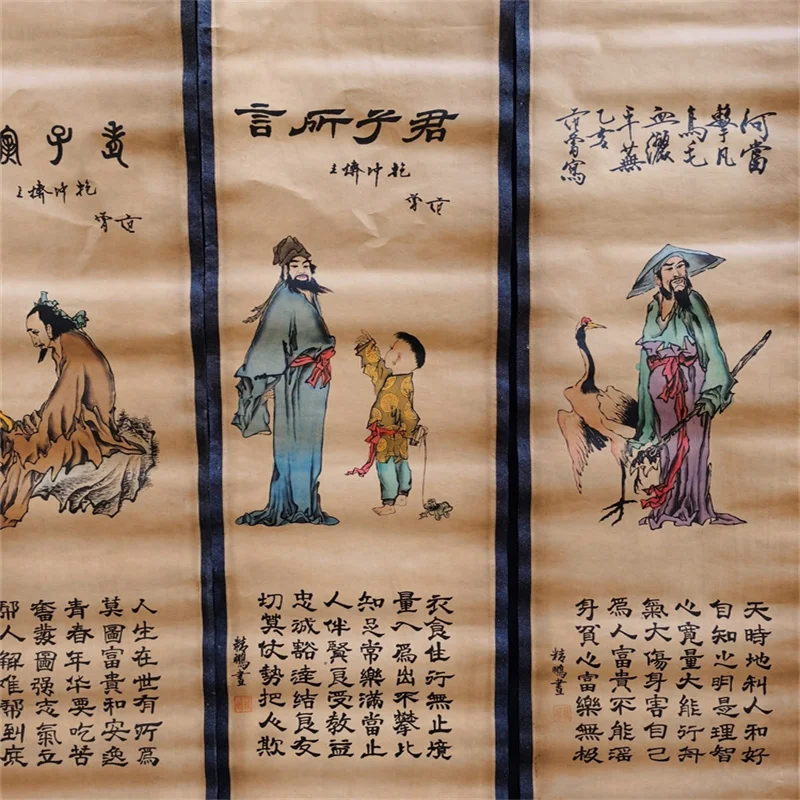 何當
擊凡
鳥毛
血灑
平蕪
乙亥
范曾寫
天時地利人和好
自知之明是理智
心寬量大能行舟
氣大傷身害自己
爲人富貴不能淫
身貧心富樂無極
精鵬畫
君子所言
范曾
衣食住行無止境
量入爲出不攀比
知足常樂滿當止
人伴賢良受教益
忠誠豁達結良友
切莫仗勢把人欺
精鵬畫
老子
范曾
人生在世有所爲
莫圖富貴和安逸
青春年华要吃苦
奮發圖强志氣立
人解难帮到底